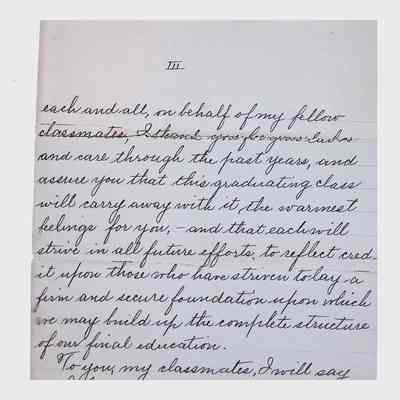 III
each and all, on behalf of my fellow
classmates, I thank you for your
and care through the past years, and
assure you that this graduating class
will carry away with it, the warmest
feelings for you, – and that each will
strive in all future efforts, to reflect cred-
it upon those who have striven to lay a
firm and secure foundation upon which
we may build up the complete structure
of our final education.
To you, my classmates, I will say